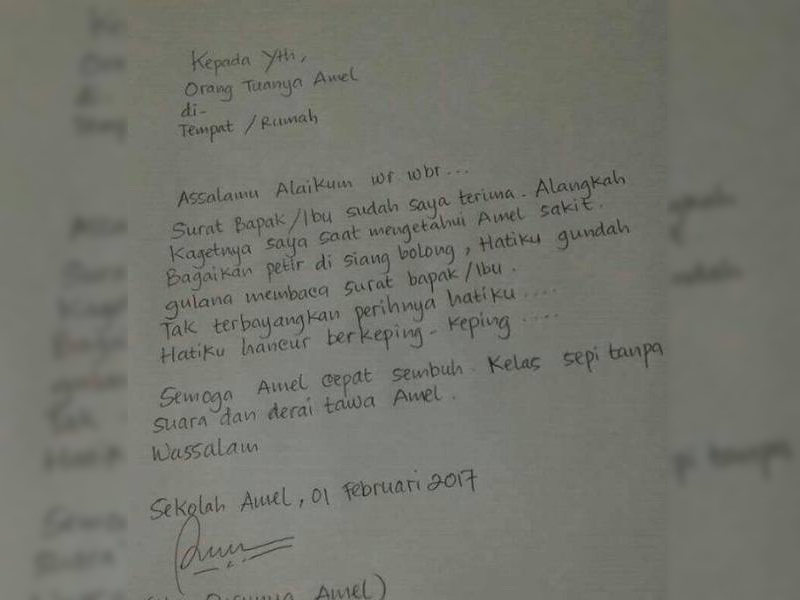 Kepada Yth,
Orang Tuanya Amel
di-
Tempat / Rumah
Assalamu Alaikum wr wbr...
Surat Bapak/Ibu sudah saya terima. Alangkah
Kagetnya saya saat mengetahui Amel sakit.
Bagaikan petir di siang bolong, Hatiku gundah
gulana membaca surat bapak/Ibu.
Tak terbayangkan perihnya hatiku....
Hatiku hancur berkeping-keping....
Semoga Amel cepat sembuh. Kelas sepi tanpa
suara dan derai tawa Amel.
Wassalam
Sekolah Amel, 01 Februari 2017
Amel)